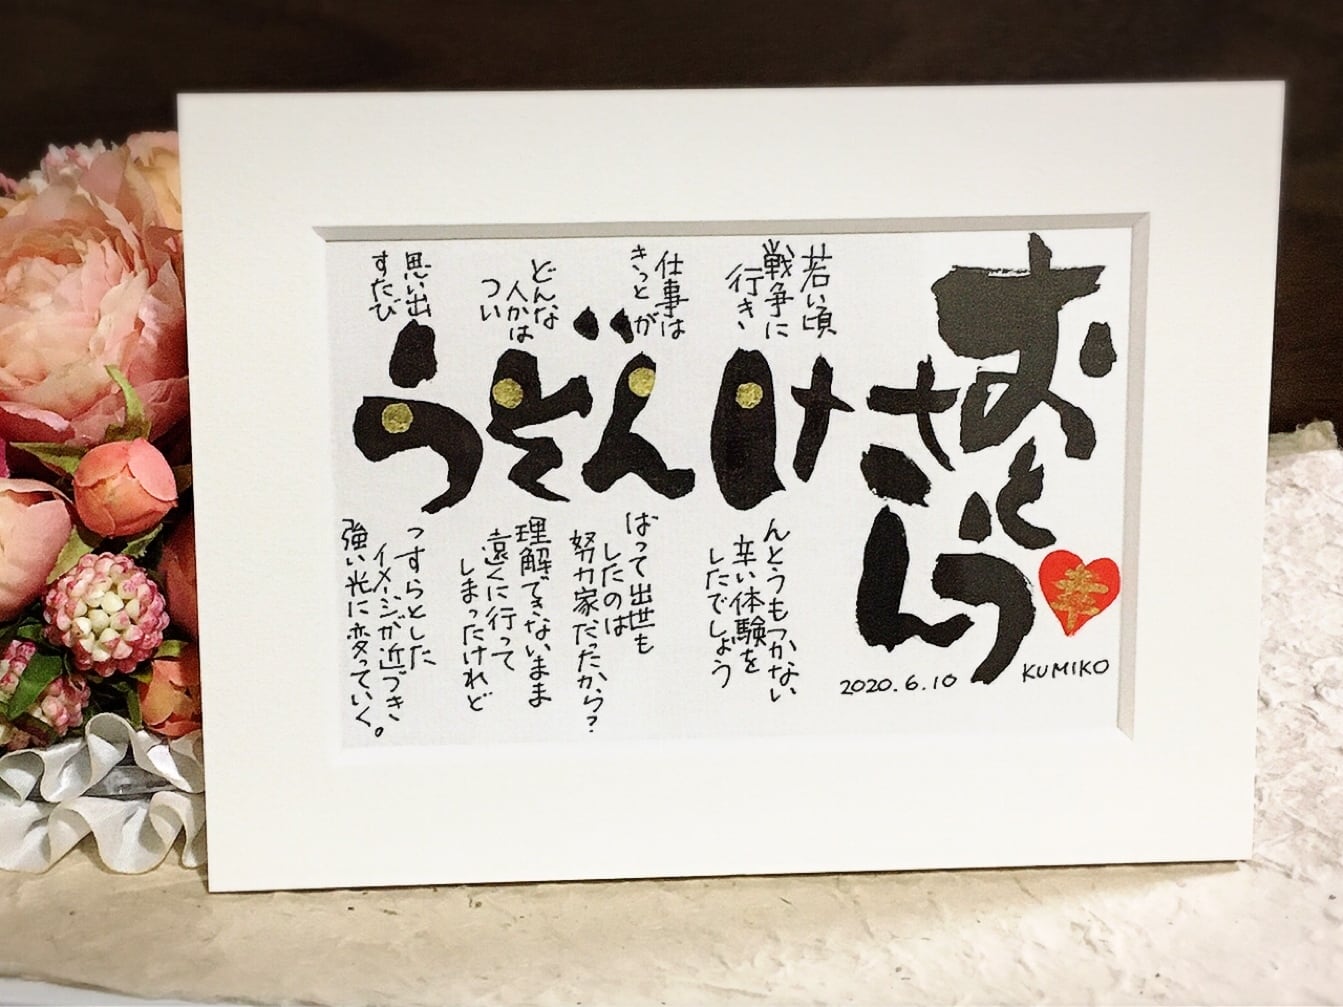 おとう
さん
けんぞう
若い頃
戦争に
行き、
んとうもつかない
辛い体験を
したでしょう
仕事は
きっとが
ばって出世も
したのは
努力家だったから?
どんな
人かは
つい
理解できないまま
遠くに行って
しまったけれど
思い出
すたび
っすらとした
イメージが近づき、
強い光に変っていく。
幸
KUMIKO
2020.6.10